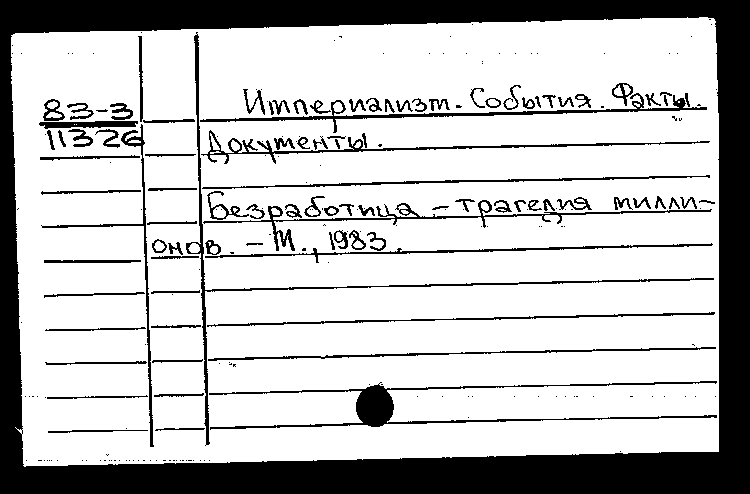 83-3
11326
Империализм. События. Факты.
Документы.
Безработица – трагедия милли-
онов. – М., 1983.